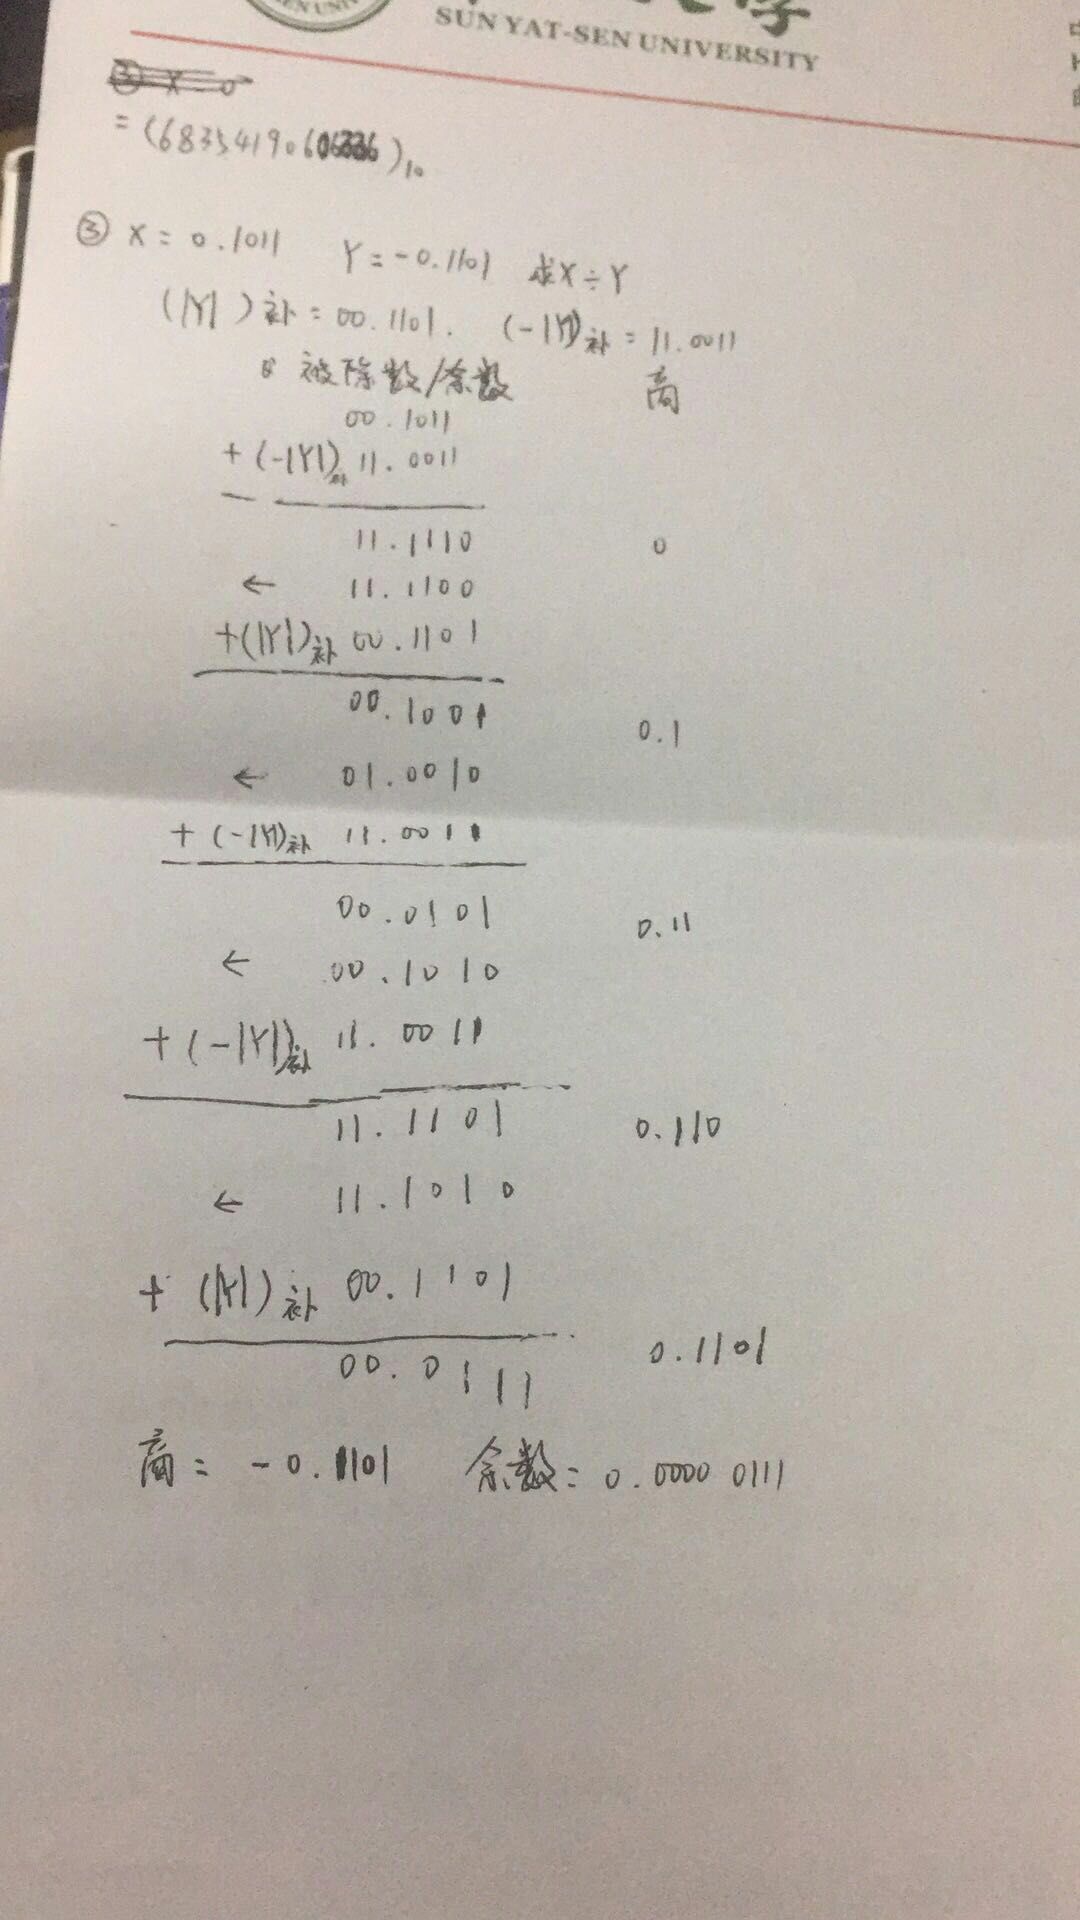 SUN YAT-SEN UNIVERSITY
= (6835419060)₁₀
③ X = 0.1011 Y = -0.1101 求X÷Y
(|Y|)补 = 00.1101. (-|Y|)补 = 11.0011
被除数/余数 商
00.1011
+ (-|Y|)补 11.0011
11.1110 0
← 11.1100
+(|Y|)补 00.1101
00.1001 0.1
← 01.0010
+ (-|Y|)补 11.0011
00.0101 0.11
← 00.1010
+ (-|Y|)补 11.0011
11.1101 0.110
← 11.1010
+ (|Y|)补 00.1101
00.0111 0.1101
商 = -0.1101 余数 = 0.0000 0111